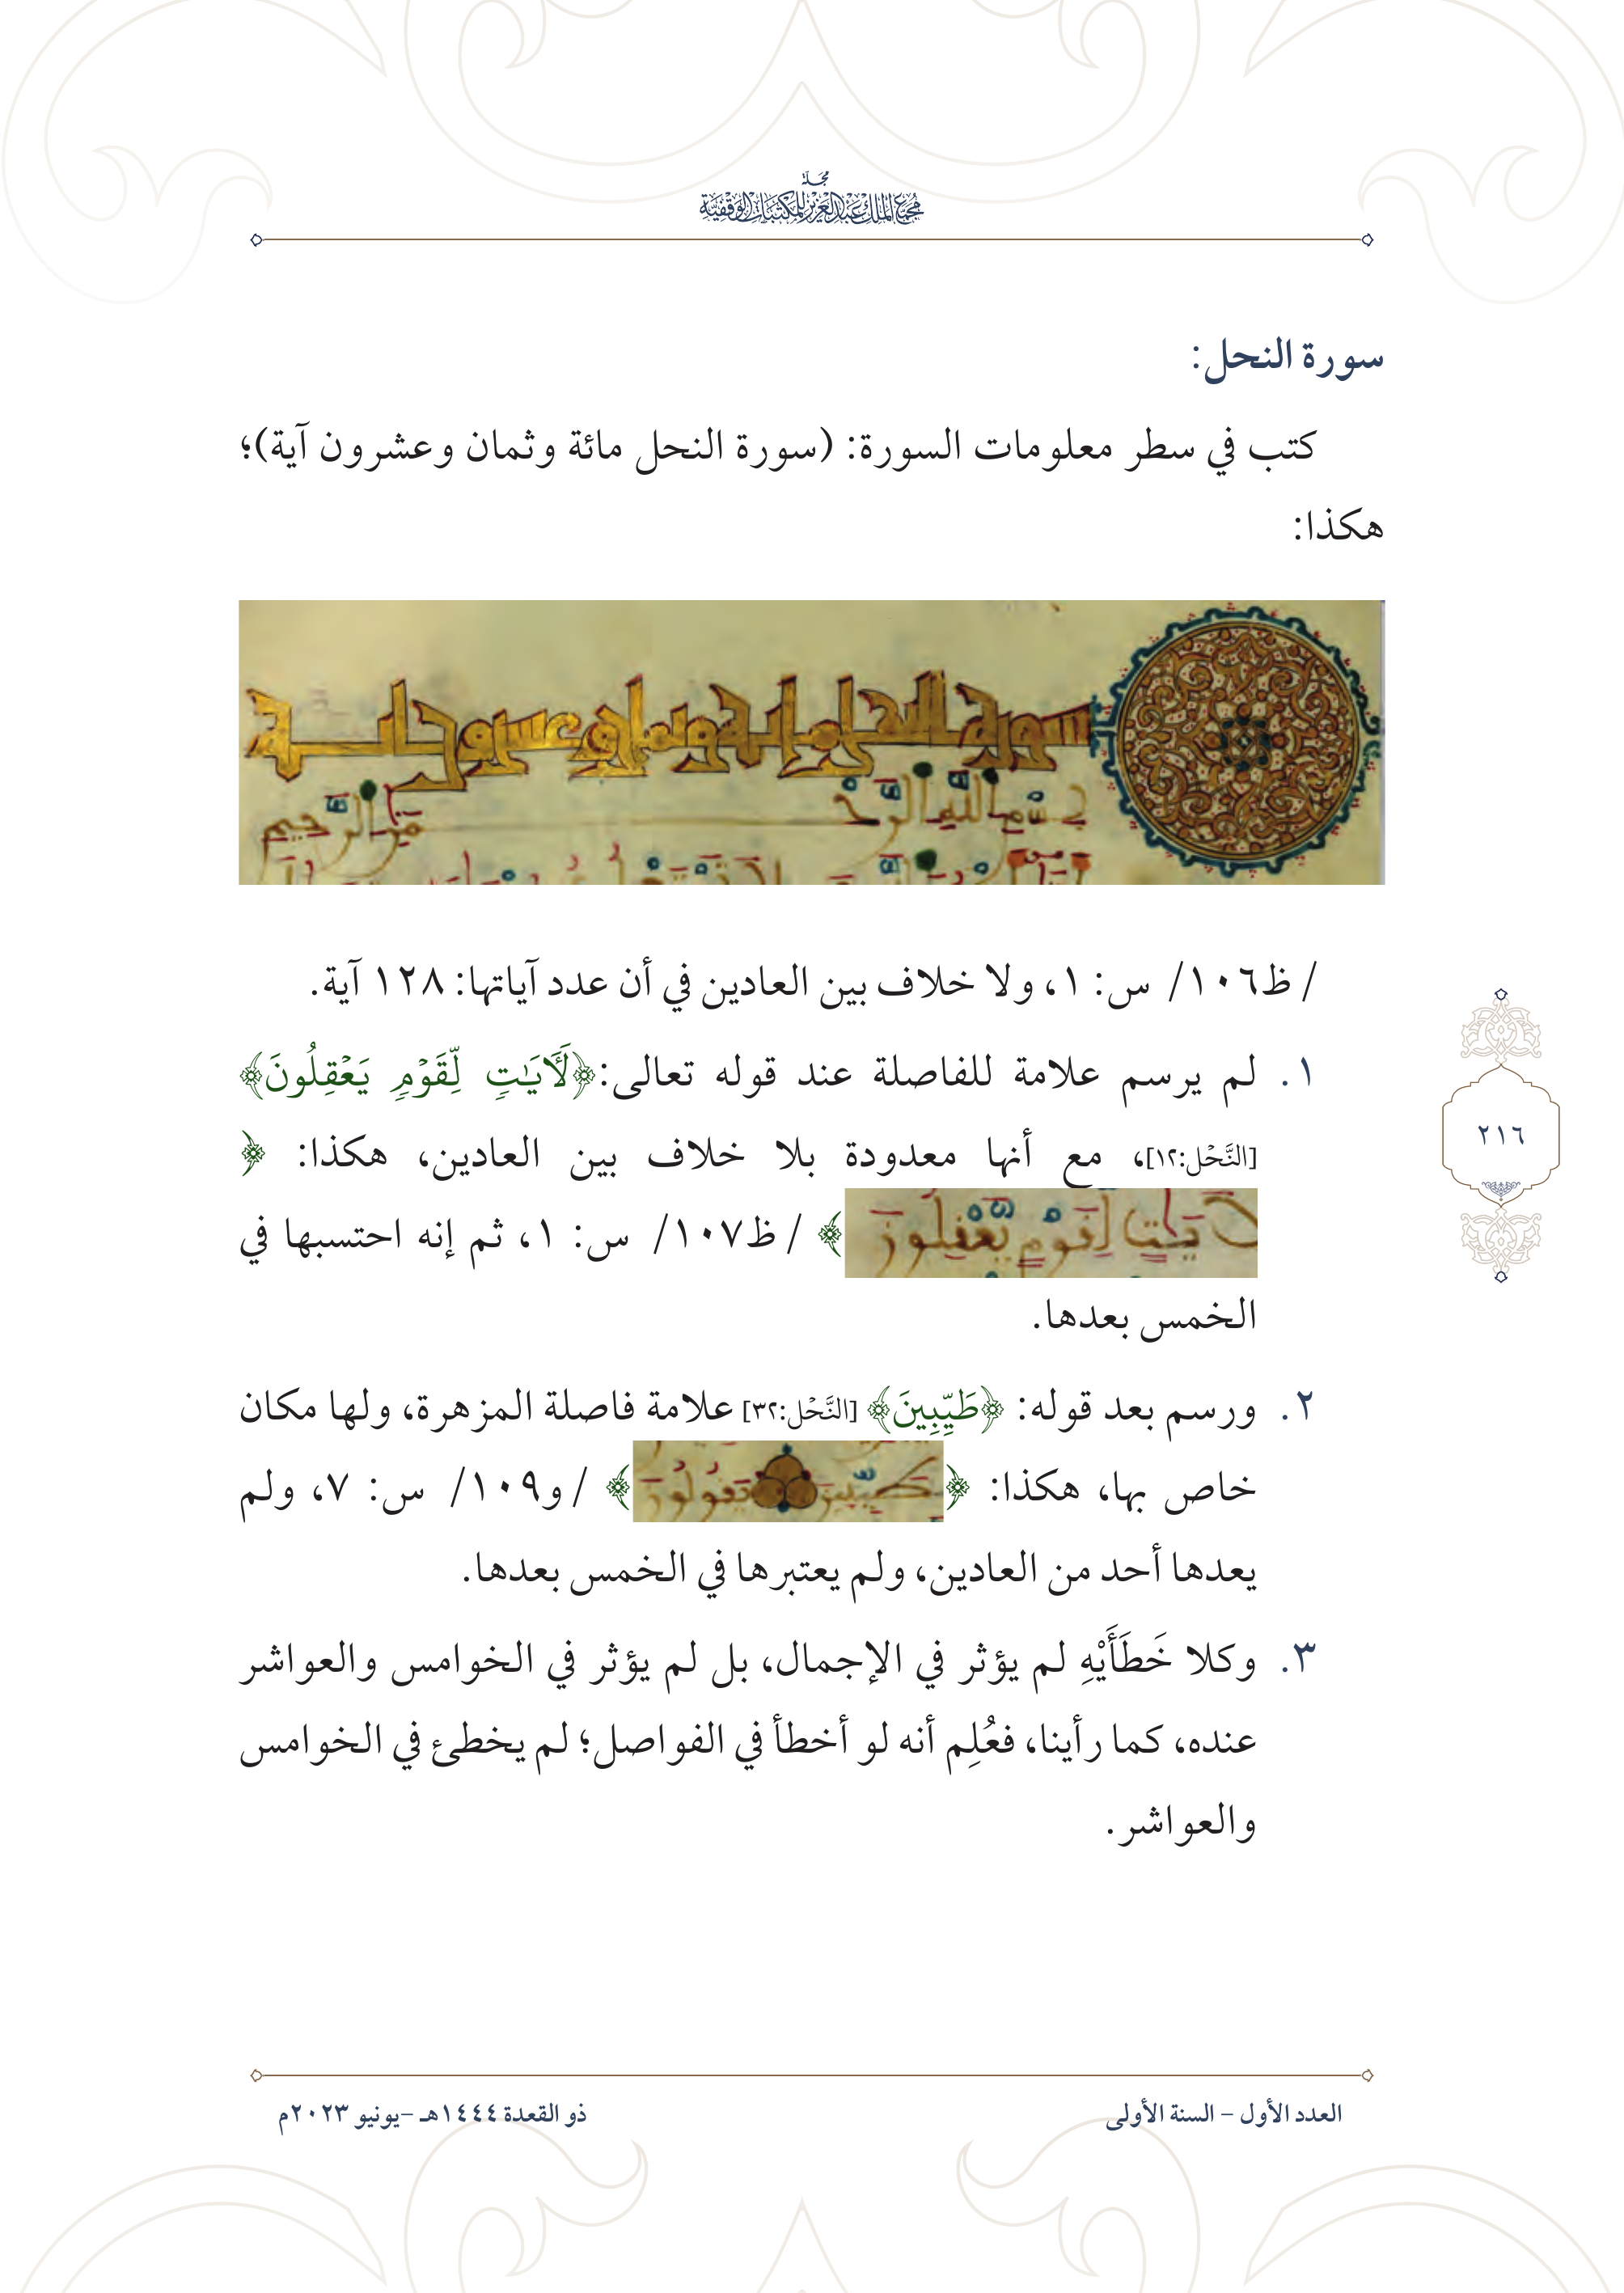 مجلة
مجمع الملك عبد العزيز للمكتبات الوقفية
سورة النحل:
كتب في سطر معلومات السورة: (سورة النحل مائة وثمان وعشرون آية)؛
هكذا:
سورة النحل مائة وثمان وعشرون آية
بسم الله الرحمن الرحيم
/ ظ١٠٦/ س: ١، ولا خلاف بين العادين في أن عدد آياتها: ١٢٨ آية.
١. لم يرسم علامة للفاصلة عند قوله تعالى: ﴿لَأٓيَٰتٖ لِّقَوۡمٖ يَعۡقِلُونَ﴾
[النَّحْل:١٢]، مع أنها معدودة بلا خلاف بين العادين، هكذا: ﴿
لايت لقوم يعقلون ﴾ / ظ١٠٧/ س: ١، ثم إنه احتسبها في
الخمس بعدها.
٢. ورسم بعد قوله: ﴿طَيِّبِينَ﴾ [النَّحْل:٣٢] علامة فاصلة المزهرة، ولها مكان
خاص بها، هكذا: ﴿ طيبين يقولون ﴾ / و١٠٩/ س: ٧، ولم
يعدها أحد من العادين، ولم يعتبرها في الخمس بعدها.
٣. وكلا خَطَأَيْهِ لم يؤثر في الإجمال، بل لم يؤثر في الخوامس والعواشر
عنده، كما رأينا، فعُلِم أنه لو أخطأ في الفواصل؛ لم يخطئ في الخوامس
والعواشر.
٢١٦
العدد الأول – السنة الأولى
ذو القعدة ١٤٤٤هـ –يونيو ٢٠٢٣م